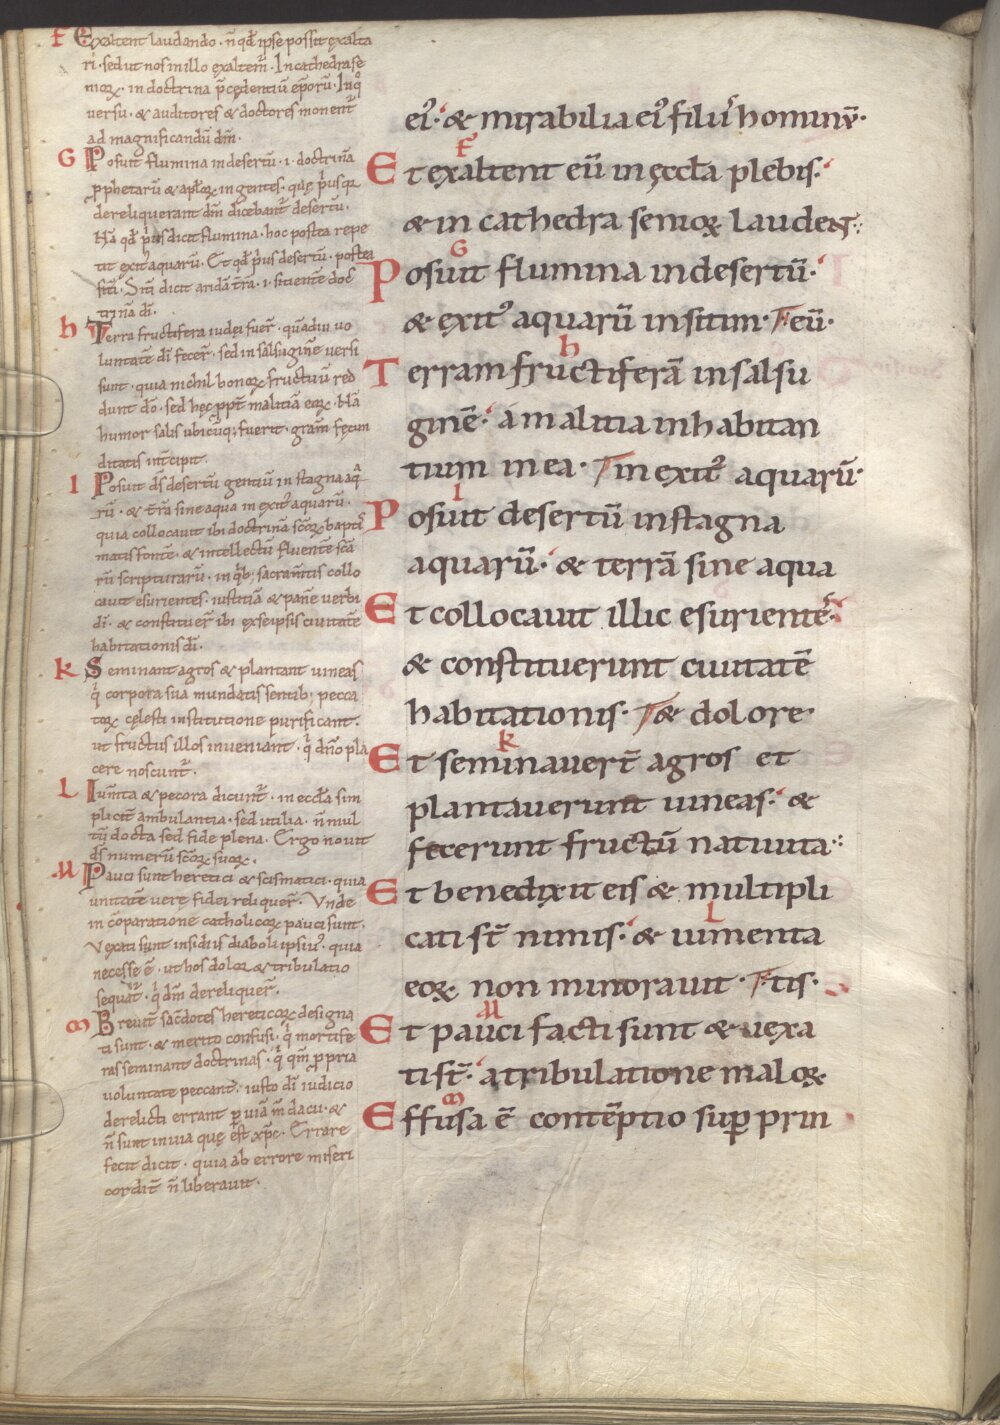 F Exaltent laudando · n̄ qđ ipse possit exalta
ri · sed ut nos in illo exaltem̄ · In cathedra se
nioꝝ · in doctrina p̄cędentiū ep̄orū · In q°
versu · & auditores & doctores monent̄
ad magnificandū dm̄ ·
G Posuit flumina in desertū · i · doctrinā
ꝓphetarū & apl̄oꝝ in gentes · quę p̍usquā
dereliquerant dm̄ dicebant̄ desertū ·
Nā qđ p̍us dicit flumina · hoc postea repe
tit exit᾿ aquarū · Et qđ p̍us desertū · postea
sitī · Sitī dicit aridā t̄rā · i · sitientē doc
trinā dī ·
h Terra fructifera iudei fuer̄ · quādiu uo
luntatē dī fecer̄ · sed in salsuginē versi
sunt · quia nichil bonoꝝ fructuū red
dunt dō · sed hęc ꝓpt̄ malitiā eoꝝ · Nā
humor salis ubicūq; fuerit · gram̄ fęcun
ditatis int̄cipit ·
I Posuit ds̄ desertū gentiū in stagna aq̄
rū · & t̄rā sine aqua in exit᾿ aquarū ·
quia collocauit ibi doctrinā scōꝝ bapti
matis fontē · & intellectū fluentē scā
rū scripturarū · in q̍b; sacram̄tis collo
cauit esurientes · iustitiā & panē verbi
dī · & constituer̄ ibi ex seipsis ciuitatē
habitationis dī ·
K Seminant agros & plantant uineas
q̍ corpora sua mundatis sentib; pecca
toꝝ cęlesti institutione purificant ·
ut fructus illos inueniant · q̍ dn̄o pla
cere noscunt̄ ·
L Ium̄ta & pecora dicunt̄ · in eccl̄a sim
plicit̄ ambulantia · sed utilia · n̄ mul
tū docta sed fide plena · Ergo nouit
ds̄ numerū scōꝝ suoꝝ ·
M Pauci sunt heretici & scismatici · quia
unitatē uerę fidei reliquer̄ · Vnde
in cōparatione catholicoꝝ pauci sunt ·
Vexati sunt insidiis diaboli ipsius · quia
necesse ē · ut hos dolor & tribulatio
sequat̄ · q̍ dm̄ dereliquer̄ ·
m Breuit̄ sac̄dotes hereticoꝝ designa
ti sunt · & merito confusi · q̍ mortife
ras seminant doctrinas · q̍ qm̄ ꝓpria
voluntate peccant · iusto dī iudicio
derelicti errant ꝑ uiā m̄dacii · &
n̄ sunt in uia quę est xp̄c · Errare
fecit dicit · quia ab errore miseri
cordit̄ n̄ liberauit ·
ei᾿ · & mirabilia ei᾿ filiis hominū ·
F
Et exaltent eū in ęccl̄a plebis ·
& in cathedra senioꝝ laudent ·
G
Posuit flumina in desertū ·
& exit᾿ aquarū in sitim · eū ·
h
Terram fructiferā in salsu
ginē · a malitia inhabitan
tium in ea · in exit᾿ aquarū ·
I
Posuit desertū in stagna
aquarū · & terrā sine aqua
Et collocauit illic esurientes
& constituerunt ciuitatē
habitationis · & dolore ·
K
Et seminauer̄t agros et
plantauerunt uineas · &
fecerunt fructū natiuita ·
Et benedixit eis & multipli
L
cati st̄ nimis · & iumenta
eoꝝ non minorauit · tis ·
M
Et pauci facti sunt & uexa
ti st̄ · a tribulatione maloꝝ
m
Effusa ē contēptio suꝑ prin